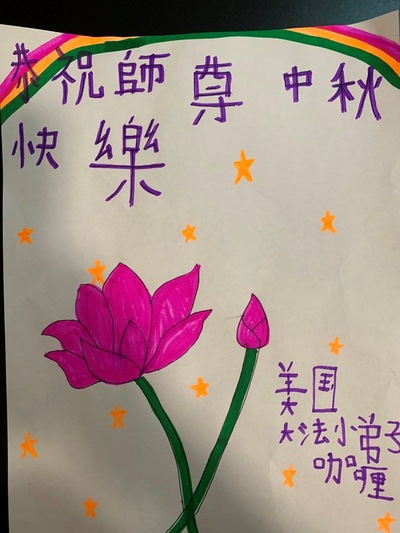 恭祝師尊中秋
快樂
美国
大法小弟子
咖喱